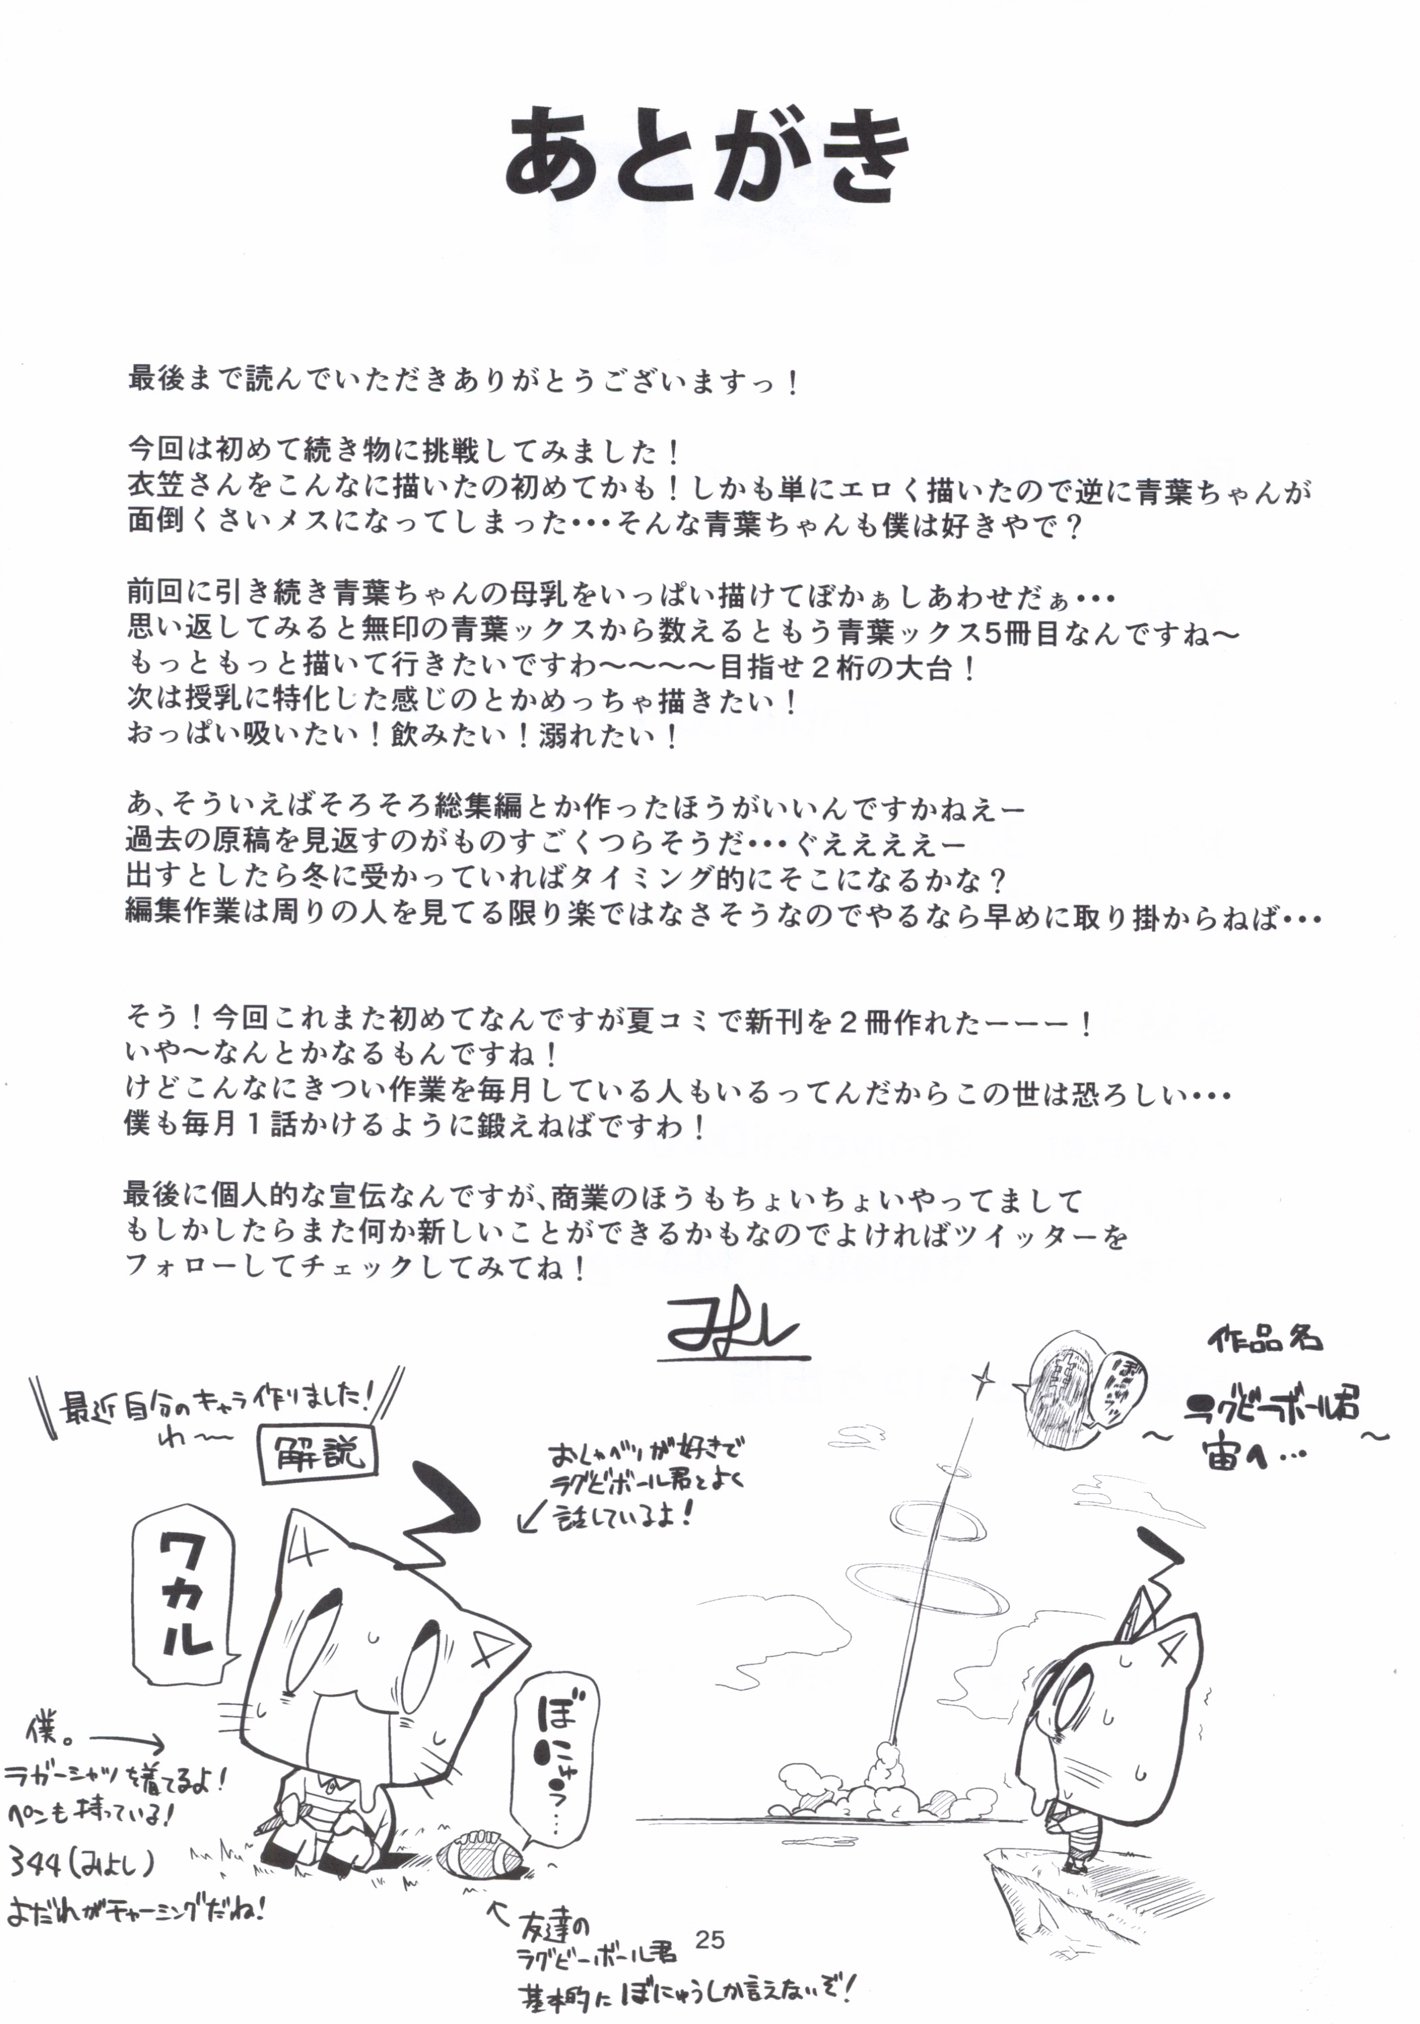 あとがき
最後まで読んでいただきありがとうございますっ！
今回は初めて続き物に挑戦してみました！
衣笠さんをこんなに描いたの初めてかも！しかも単にエロく描いたので逆に青葉ちゃんが
面倒くさいメスになってしまった・・・そんな青葉ちゃんも僕は好きやで？
前回に引き続き青葉ちゃんの母乳をいっぱい描けてぼかぁしあわせだぁ・・・
思い返してみると無印の青葉ックスから数えるともう青葉ックス5冊目なんですね～
もっともっと描いて行きたいですわ～～～～目指せ２桁の大台！
次は授乳に特化した感じのとかめっちゃ描きたい！
おっぱい吸いたい！飲みたい！溺れたい！
あ、そういえばそろそろ総集編とか作ったほうがいいんですかねえー
過去の原稿を見返すのがものすごくつらそうだ・・・ぐええええー
出すとしたら冬に受かっていればタイミング的にそこになるかな？
編集作業は周りの人を見てる限り楽ではなさそうなのでやるなら早めに取り掛からねば・・・
そう！今回これまた初めてなんですが夏コミで新刊を２冊作れたーーー！
いや～なんとかなるもんですね！
けどこんなにきつい作業を毎月している人もいるってんだからこの世は恐ろしい・・・
僕も毎月１話かけるように鍛えねばですわ！
最後に個人的な宣伝なんですが、商業のほうもちょいちょいやってまして
もしかしたらまた何か新しいことができるかもなのでよければツイッターを
フォローしてチェックしてみてね！
みよし
最近自分のキャラ作りました！
わ～
解説
おしゃべりが好きで
ラグビボール君とよく
話しているよ！
ワカル
ぼにゅう…
僕。
ラガーシャツを着てるよ！
ペンも持っている！
344（みよし）
よだれがチャーミングだね！
友達の
ラグビーボール君
基本的にぼにゅうしか言えないぞ！
作品名
～ラグビーボール君
宙へ…～
25